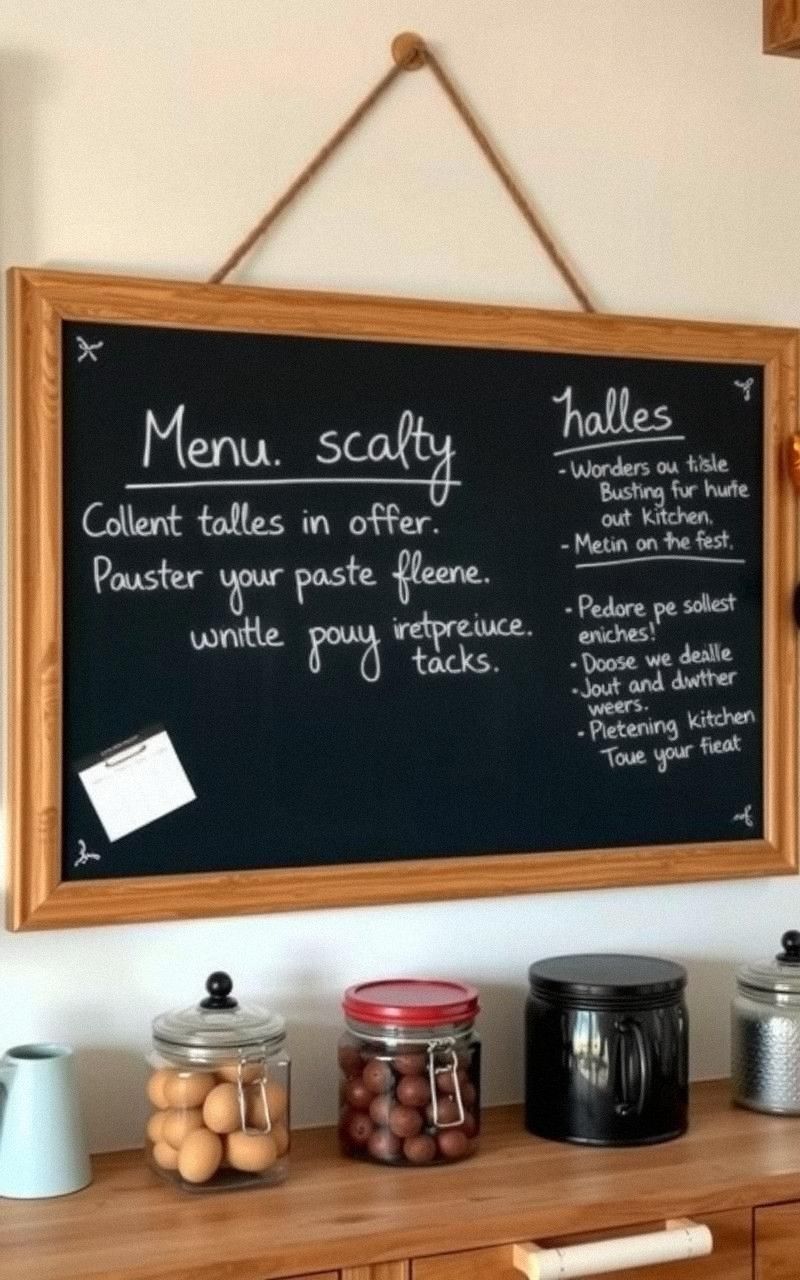 Menu. scalty
Collent talles in offer.
Pauster your paste fleene.
wnitle pouy iretpreiuce.
tacks.
halles
- Wonders ou tisle
Busting fur hurte
out kitchen.
- Metin on the fest.
• Pedore pe sollest
eniches!
• Doose we dealle
• Jout and dwther
weers.
• Pletening kitchen
Toue your fieat